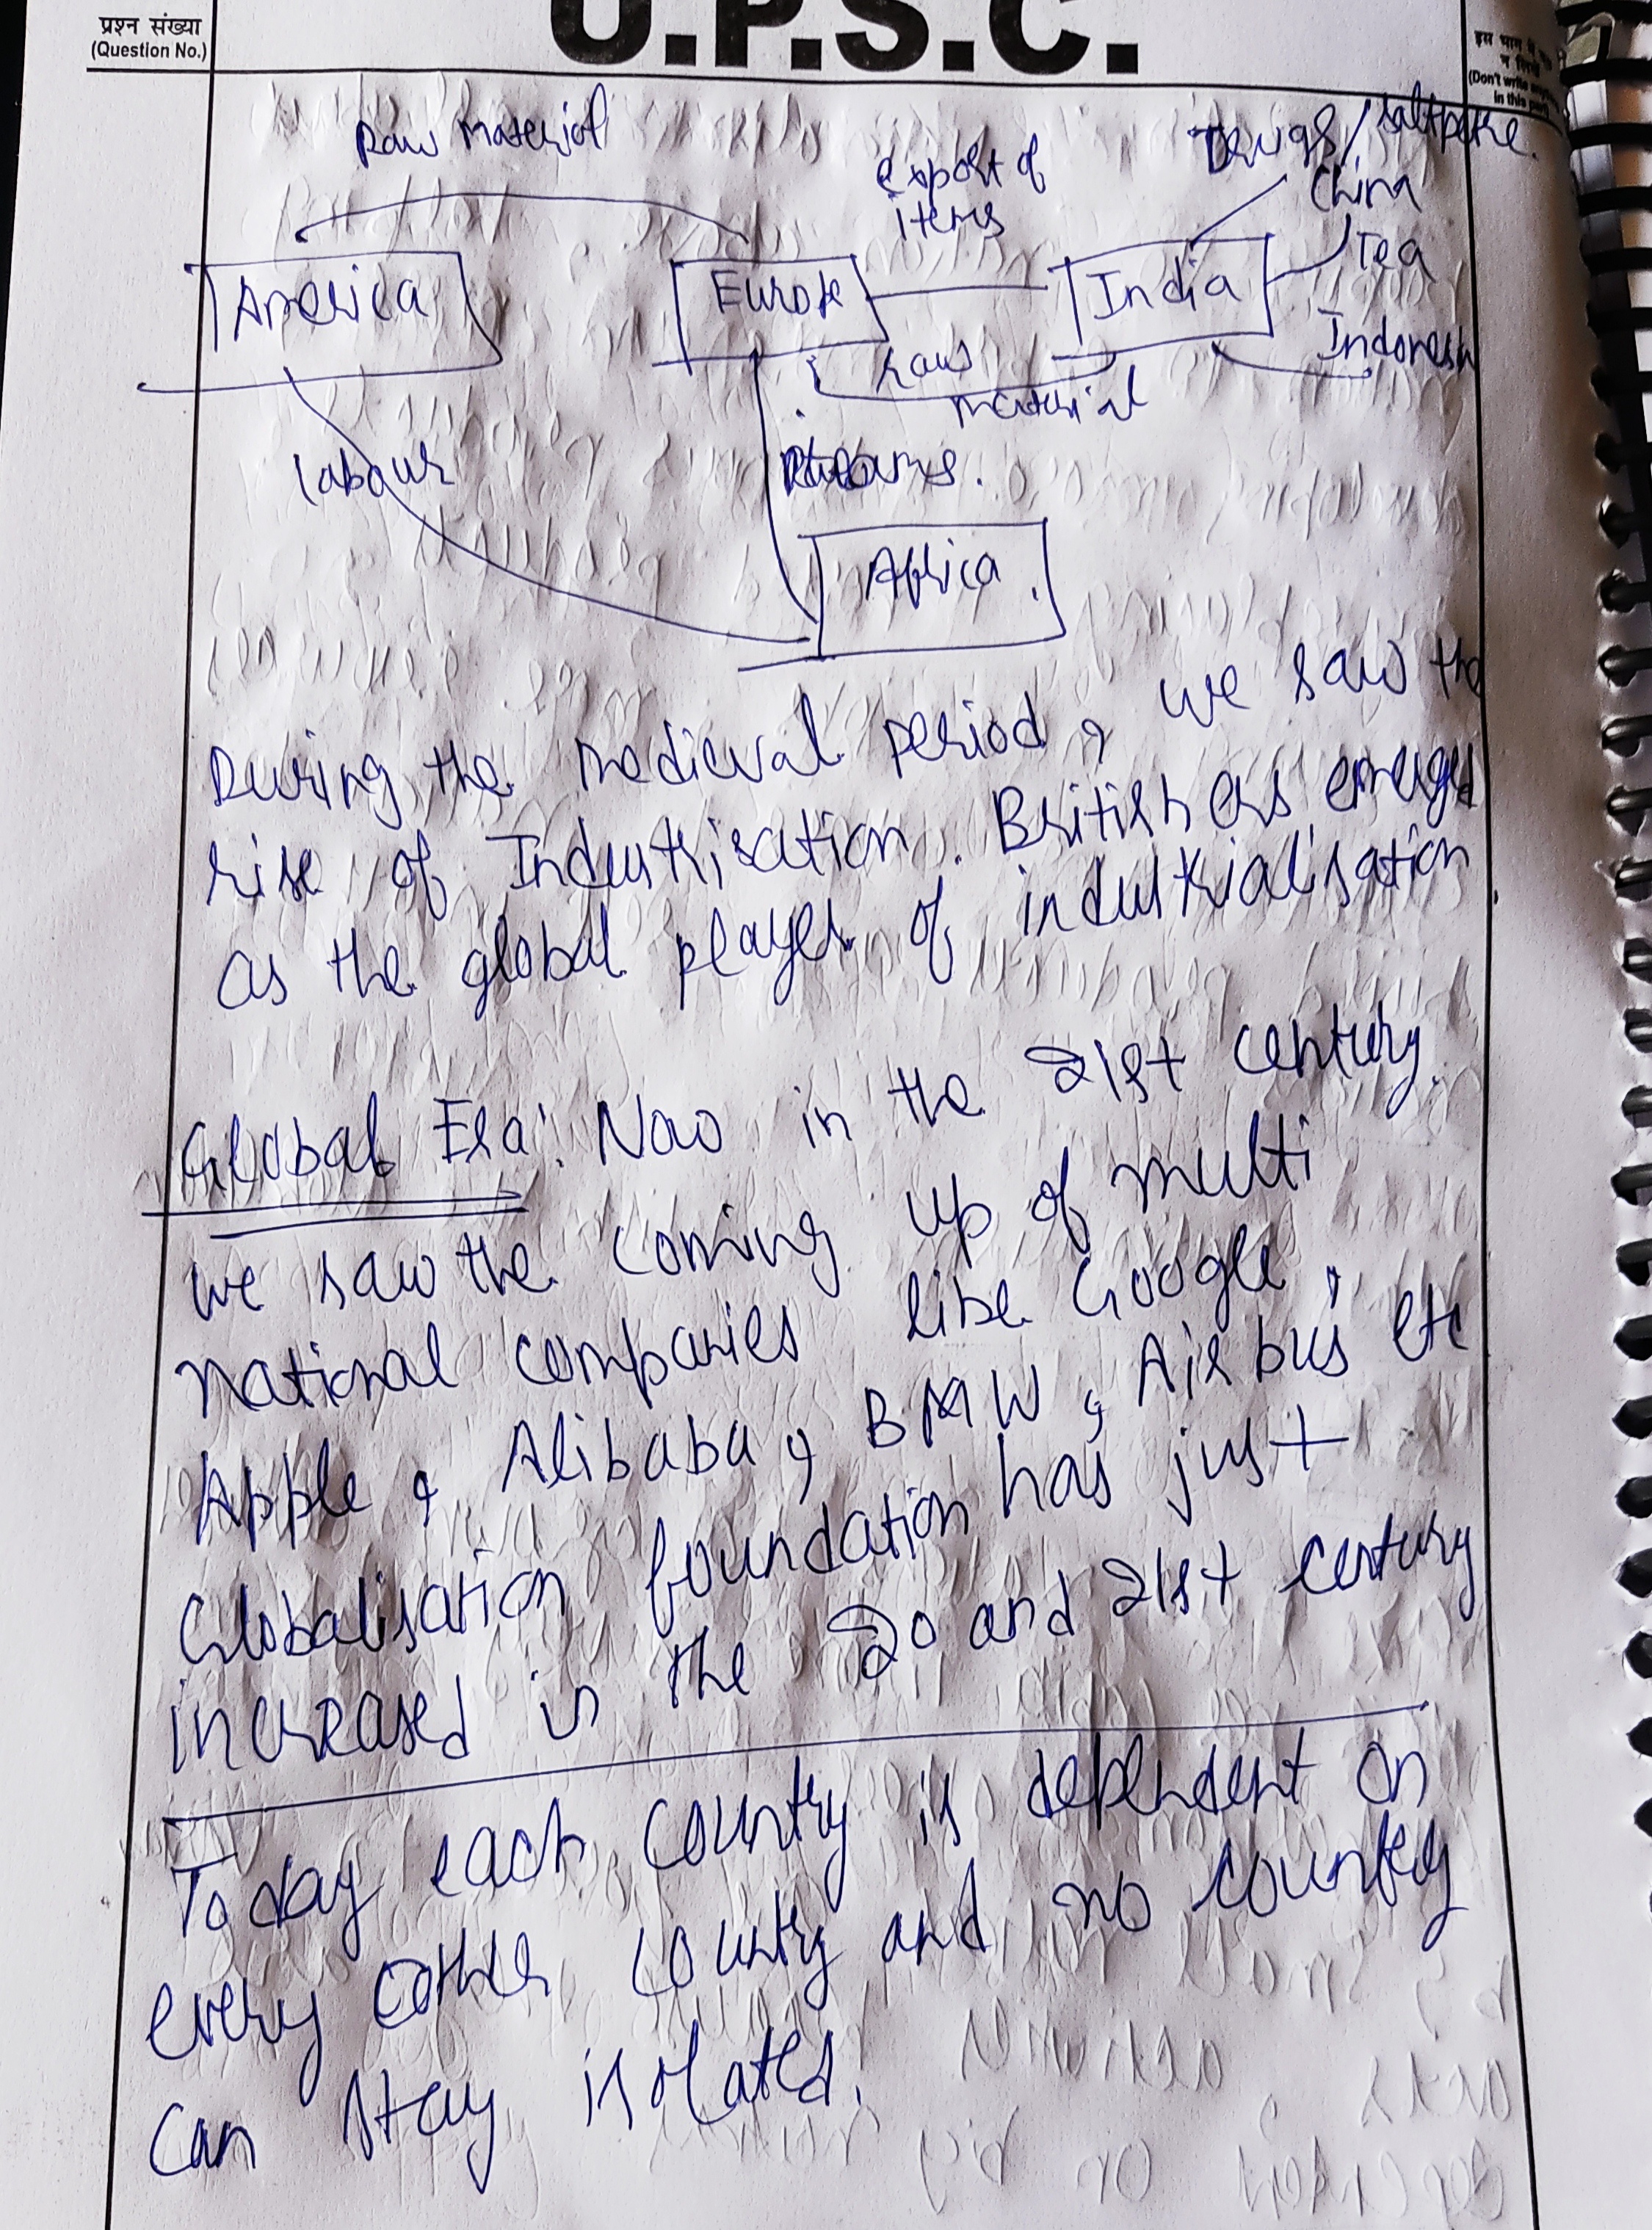 प्रश्न संख्या
(Question No.)
U.P.S.C.
(Don't write
in this
Raw Material
export of
items
Drugs/Saltpetre.
China
Tea
America
Europe
India
Indonesia
raw
material
labour
Africa
During the medieval period, we saw the
rise of Industrisation. Britishers emerged
as the global player of industrialisation.
Global Era: Now in the 21st century.
we saw the coming up of multi
national companies like Google,
Apple, Alibaba, BMW, Airbus etc
Globalisation foundation has just
increased in the 20 and 21st century
Today each country is dependent on
every other country and no country
can stay isolated.